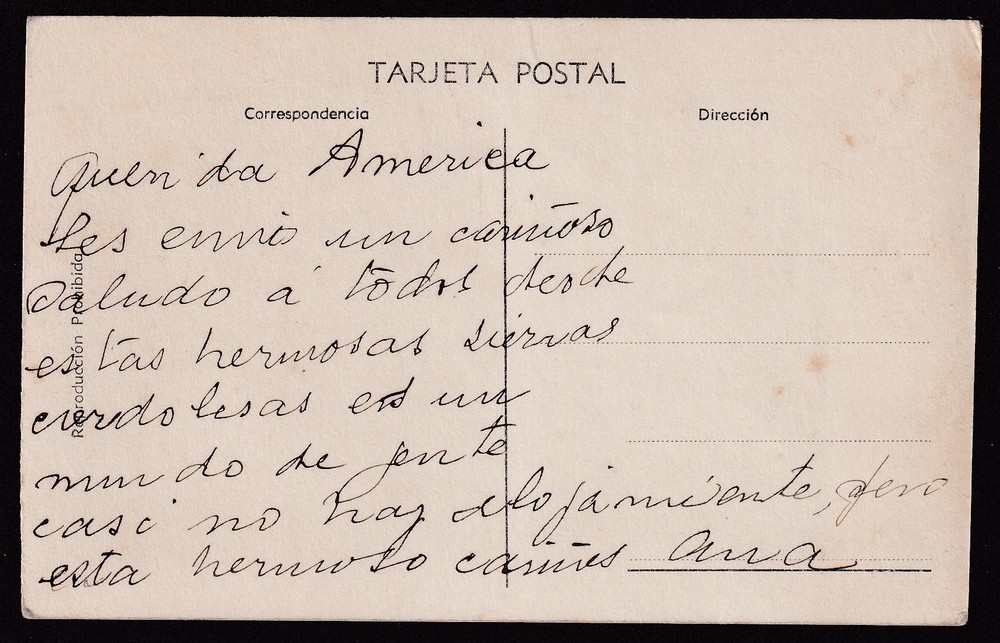 TARJETA POSTAL
Correspondencia
Dirección
Querida America
Les envio un cariñoso
saludo á todos desde
estas hermosas sierras
cordobesas es un
mundo de jente
casi no hay alojamiente, pero
esta hermoso cariños Ana
Reproducción Prohibida